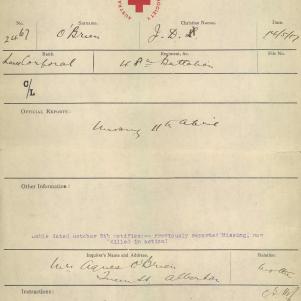 No.
Surname.
Christian Names.
Date
2467
O'Brien
J. D.
14/5/17
Rank
Regiment, &c.
File No.
Lance Corporal
48th Battalion
C/L
OFFICIAL REPORTS:
Missing 11th April
Other Information:
Cable dated October 8th notifies:- Previously reported Missing, now
killed in action:
Inquirer's Name and Address.
Relation:
Mrs Agnes O'Brien
Mother
St. Alberton
Instructions: